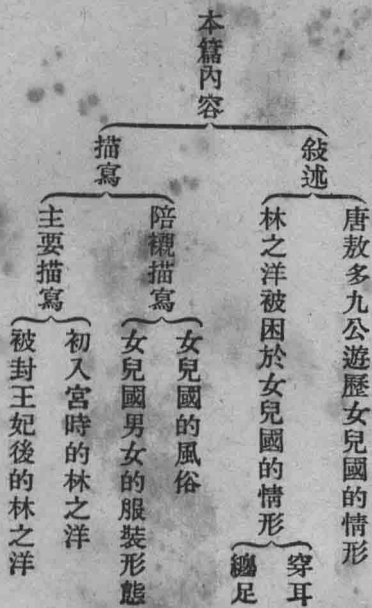 本篇內容
敍述
唐敖多九公遊歷女兒國的情形
林之洋被困於女兒國的情形
穿耳
纏足
描寫
陪襯描寫
女兒國的風俗
女兒國男女的服裝形態
主要描寫
初入宮時的林之洋
被封王妃後的林之洋